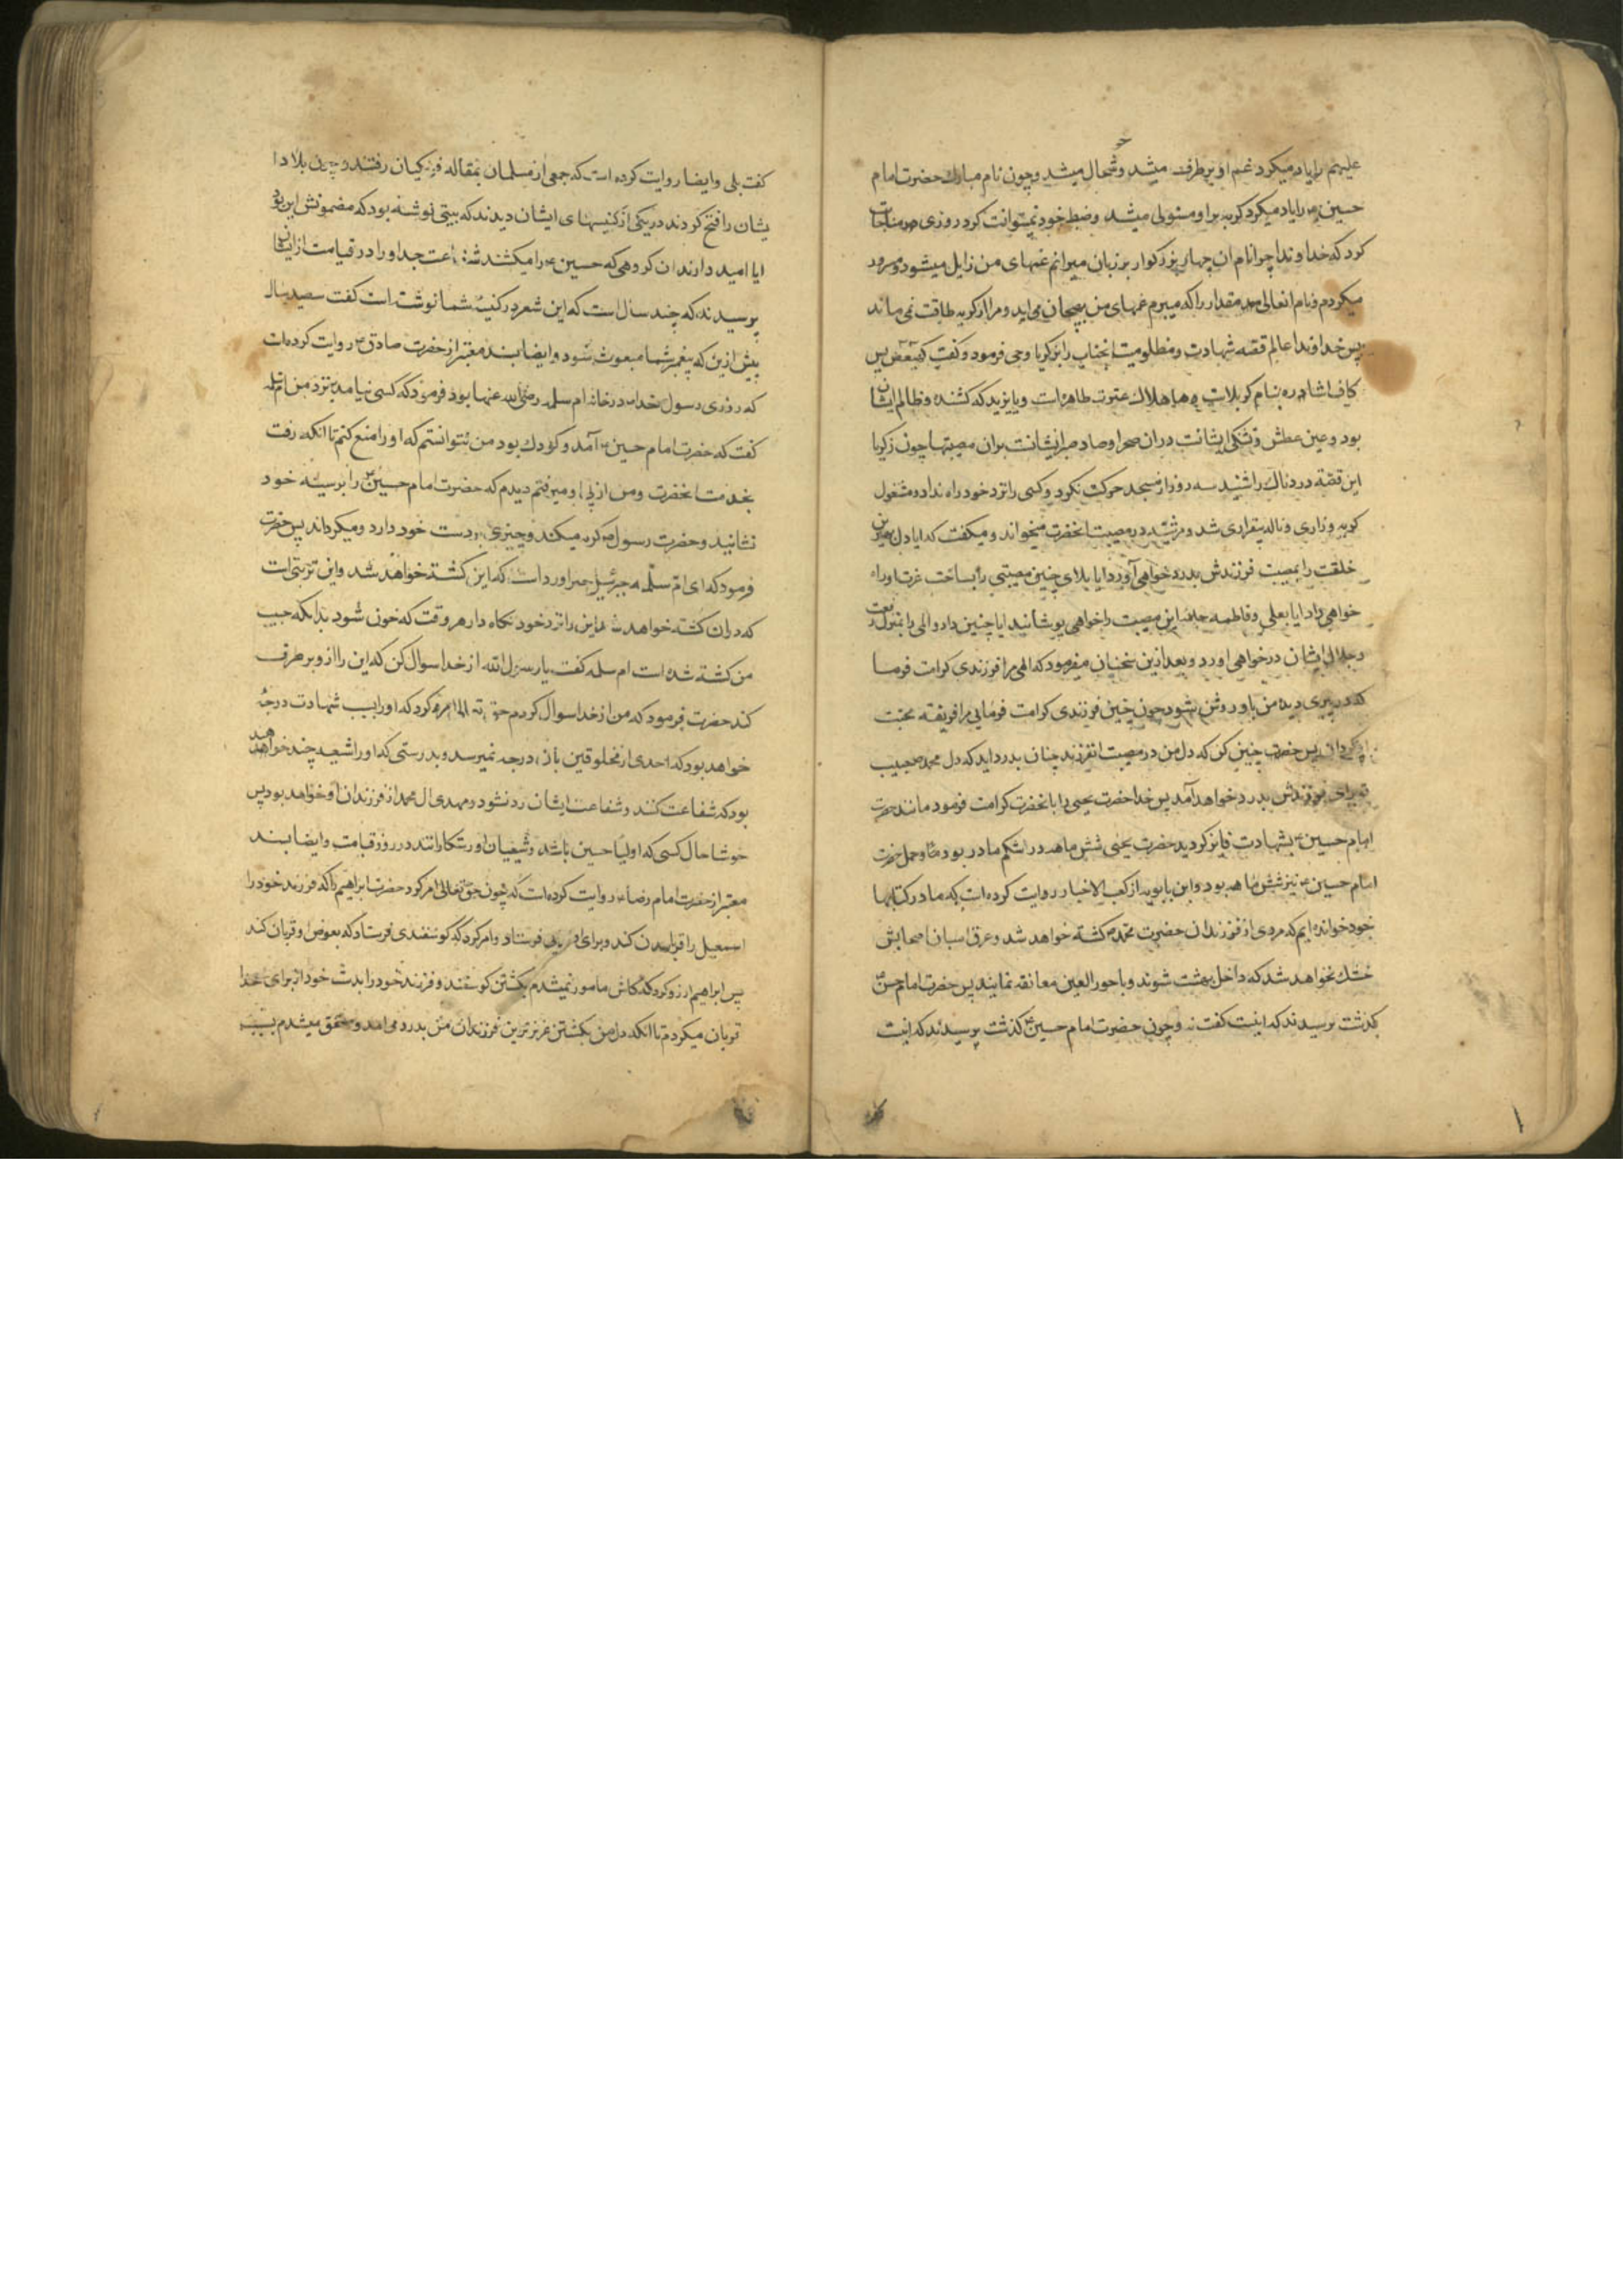 علیهم را یاد میکرد غم او برطرف میشد و خوشحال میشد و چون نام مبارک حضرت امام
حسین ع را یاد میکرد گریه بر او مستولی میشد و ضبط خود نمیتوانست کرد روزی در مناجات
کرد که خداوندا چرا نام ان چهار بزرگوار بر زبان میرانم غمهای من زایل میشود و مسرور
میکردم و نام انعالی مقدار را که میبرم غمهای من بهیجان می اید و مرا از گریه طاقت نمی ماند
پس خداوند عالم قصه شهادت و مظلومیت انجناب را بزکریا وحی فرمود و کفت کهیعص پس
کاف اشاره بنام کربلاست و ها هلاک عترت طاهره است و یا یزید که کشنده و ظالم ایشان
بود و عین عطش و تشنکی ایشانست دران صحرا و صاد صبر ایشانست بران مصیبتها چون زکریا
این قصه دردناک را شنید سه روز از مسجد حرکت نکرد و کسی را نزد خود راه نداد و مشغول
کریه و زاری و ناله بیقراری شد و مرثیه در مصیبت انحضرت میخواند و میکفت که ایا دل بهترین
خلقت را بمصیبت فرزندش بدرد خواهی آورد ایا بلای چنین مصیبتی را بساحت عزت او راه
خواهی داد ایا بعلی و فاطمه جامه این مصیبت را خواهی پوشانید ایا چنین درد و المی را بمنزل رفعت
و جلال ایشان درخواهی اورد و بعد ازین سخنان میفرمود که الهی مرا فرزندی کرامت فرما
که در پیری دیده من باو روشن شود چون چنین فرزندی کرامت فرمائی مرا فریفته محبت
او کردان پس چنین کن که دل من در مصیبت انفرزند چنان بدرد اید که دل محمد ص حبیب
تو برای فرزندش بدرد خواهد آمد پس خدا حضرت یحیی را بانحضرت کرامت فرمود مانند حضرت
امام حسین ع بشهادت فایز کردید حضرت یحیی شش ماهه در شکم مادر بود و حمل حضرت
امام حسین ع نیز شش ماهه بود و ابن بابویه از کعب الاخبار روایت کرده است که ما در کتابها
خود خوانده ایم که مردی از فرزندان حضرت محمد ص کشته خواهد شد و عرق اسبان اصحابش
خشک نخواهد شد که داخل بهشت شوند و با حور العین معانقه نمایند پس حضرت امام حسن ع
کذشت پرسیدند که اینست کفت نه و چون حضرت امام حسین ع کذشت پرسیدند که اینست
کفت بلی و ایضا روایت کرده است که جمعی از مسلمانان بمقاتله فرنکیان رفتند و چون بلاد ا
یشان را فتح کردند در یکی از کنیسهای ایشان دیدند که بیتی نوشته بود که مضمونش این بود
ایا امید دارند ان کروهی که حسین ع را میکشند شفاعت جد او را در قیامت از ایشان
پرسیدند که چند سال است که این شعر در کنیسه شما نوشته است کفت سیصد سال
پیش ازین که پیغمبر شما مبعوث شود و ایضا بسند معتبر از حضرت صادق ع روایت کرده است
که روزی رسول خدا ص در خانه ام سلمه رضی الله عنها بود فرمود که کسی نیاید بنزد من ام سلمه
کفت که حضرت امام حسین ع آمد و کودک بود من نتوانستم که او را منع کنم تا انکه رفت
بخدمت انحضرت و من از پی او میرفتم دیدم که حضرت امام حسین ع را بر سینه خود
نشانید و حضرت رسول ص کریه میکند و چیزی در دست خود دارد و میکرداند پس حضرت
فرمود که ای ام سلمه جبرئیل خبر اورد است که این کشته خواهد شد و این تربتی است
که دران کشته خواهد شد این را نزد خود نکاه دار هر وقت که خون شود بدانکه حبیب
من کشته شده است ام سلمه کفت یا رسول الله از خدا سوال کن که این را از و برطرف
کند حضرت فرمود که من از خدا سوال کردم حق تعالی امر کرد که او را بسبب شهادت درجهٔ
خواهد بود که احدی از مخلوقین بان درجه نمیرسد و بدرستی که او را شیعه چند خواهند
بود که شفاعت کنند و شفاعت ایشان رد نشود و مهدی ال محمد از فرزندان او خواهد بود پس
خوشا حال کسی که اولیا حسین باشد و شیعیان او رستکارانند در روز قیامت و ایضا بسند
معتبر از حضرت امام رضا ع روایت کرده است که چون حق تعالی امر کرد حضرت ابراهیم را که فرزند خود را
اسمعیل را قربان کند و برای او فرستاد و امر کرد که کوسفندی فرستاد که بعوض او قربان کند
پس ابراهیم ارزو کرد که کاش مامور نمیشدم بکشتن کوسفند و فرزند خود را بدست خود از برای خدا
قربان میکردم تا انکه دل من بکشتن عزیزترین فرزندان من بدرد می امد و مستحق میشدم بسبب